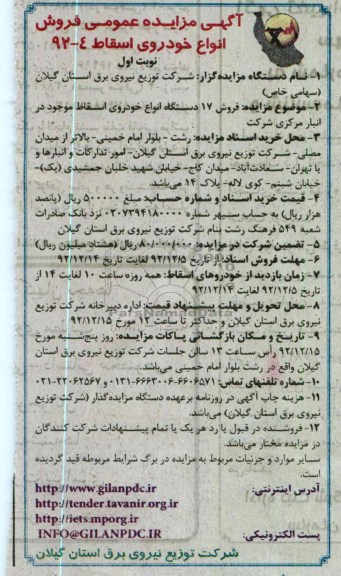 آگهی مزایده عمومی فروش
انواع خودروی اسقاط ٤-٩٢
نوبت اول
١- نام دستگاه مزایده‌گزار: شرکت توزیع نیروی برق استان گیلان
(سهامی خاص)
٢- موضوع مزایده: فروش ١٧ دستگاه انواع خودروی اسقاط موجود در
انبار مرکزی شرکت
٣- محل خرید اسناد مزایده: رشت - بلوار امام خمینی- بالاتر از میدان
مصلی- شرکت توزیع نیروی برق استان گیلان- امور تدارکات و انبارها و
یا تهران- سعادت‌آباد- میدان کاج- خیابان شهید خلبان جمشیدی (یک)-
خیابان شبنم- کوی لاله- پلاک ١٤ می‌باشد.
٤- قیمت خرید اسناد و شماره حساب: مبلغ ٥٠٠٠٠٠ ریال (پانصد
هزار ریال) به حساب سپهر شماره ٠٢٠٧٣٩٤١٨٠٠٠٠ نزد بانک صادرات
شعبه ٥٤٩ فرهنگ رشت بنام شرکت توزیع نیروی برق استان گیلان
٥- تضمین شرکت در مزایده: ٨٠/٠٠٠/٠٠٠ ریال (هشتاد میلیون ریال)
٦- مهلت فروش اسناد: از تاریخ ٩٢/١٢/٥ لغایت تاریخ ٩٢/١٢/١٤
٧- زمان بازدید از خودروهای اسقاط: همه روزه ساعت ١٠ لغایت ١٤ از
تاریخ ٩٢/١٢/٥ لغایت ٩٢/١٢/١٤
٨- محل تحویل و مهلت پیشنهاد قیمت: اداره دبیرخانه شرکت توزیع
نیروی برق استان گیلان و حداکثر تا ساعت ١٢ مورخ ٩٢/١٢/١٥
٩- تاریخ و مکان بازگشائی پاکات مزایده: روز پنج‌شنبه مورخ
٩٢/١٢/١٥ رأس ساعت ١٣ سالن جلسات شرکت توزیع نیروی برق استان
گیلان واقع در رشت بلوار امام خمینی می‌باشد.
١٠- شماره تلفنهای تماس: ٦٦٠٦٥٧١-٦٦٦٣٠٠٦-٠١٣١ و ٢٢٠٦٢٥٦٧-٠٢١
١١- هزینه چاپ آگهی در روزنامه برعهده دستگاه مزایده‌گذار (شرکت توزیع
نیروی برق استان گیلان) می‌باشد.
١٢- فروشنده در قبول یا رد هر یک یا تمام پیشنهادات شرکت کنندگان
در مزایده مختار می‌باشد.
سایر موارد و جزئیات مربوط به مزایده در برگ شرایط مربوطه قید گردیده
است.
آدرس اینترنتی: http://www.gilanpdc.ir
http://tender.tavanir.org.ir
http://iets.mporg.ir
پست الکترونیکی: INFO@GILANPDC.IR
شرکت توزیع نیروی برق استان گیلان